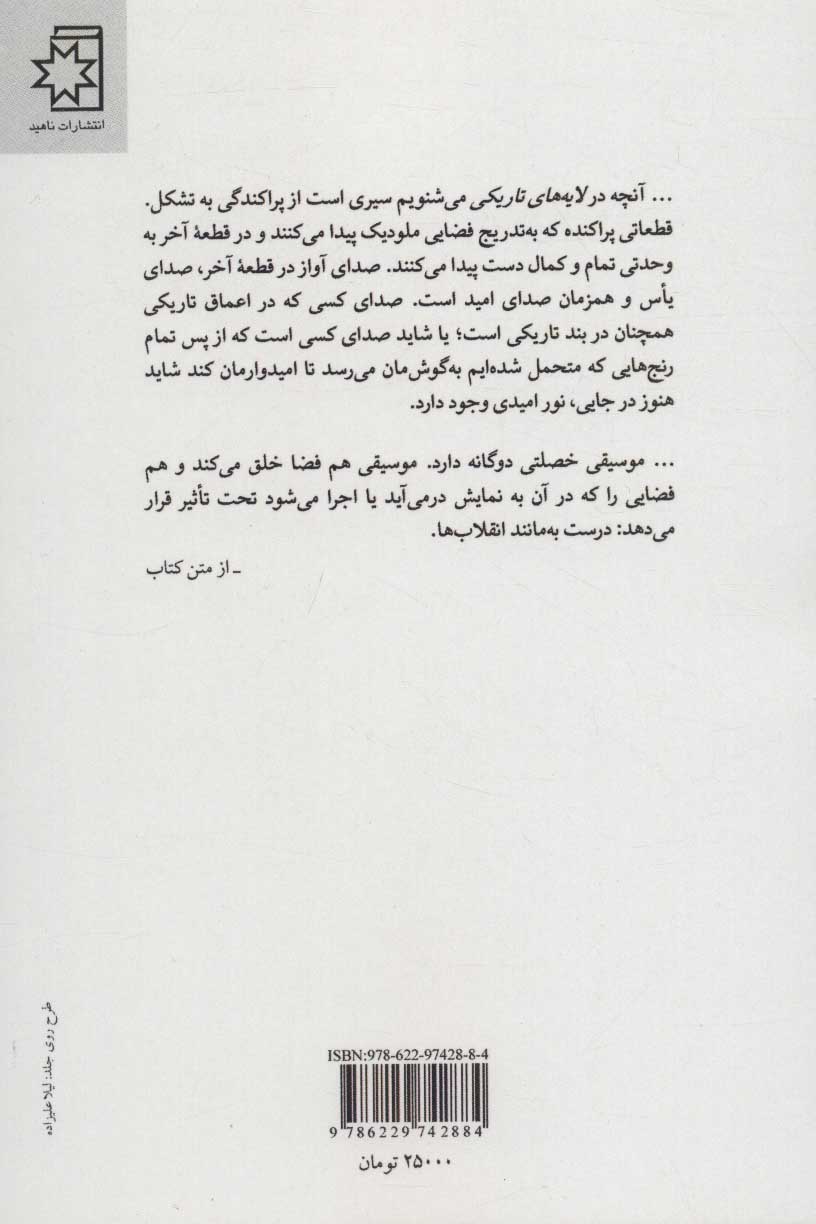 انتشارات ناهید
... آنچه در لایه‌های تاریکی می‌شنویم سیری است از پراکندگی به تشکل.
قطعاتی پراکنده که به‌تدریج فضایی ملودیک پیدا می‌کنند و در قطعهٔ آخر به
وحدتی تمام و کمال دست پیدا می‌کنند. صدای آواز در قطعهٔ آخر، صدای
یأس و همزمان صدای امید است. صدای کسی که در اعماق تاریکی
همچنان در بند تاریکی است؛ یا شاید صدای کسی است که از پس تمام
رنج‌هایی که متحمل شده‌ایم به‌گوش‌مان می‌رسد تا امیدوارمان کند شاید
هنوز در جایی، نور امیدی وجود دارد.
... موسیقی خصلتی دوگانه دارد. موسیقی هم فضا خلق می‌کند و هم
فضایی را که در آن به نمایش درمی‌آید یا اجرا می‌شود تحت تأثیر قرار
می‌دهد: درست به‌مانند انقلاب‌ها.
ـ از متن کتاب
طرح روی جلد: لیلا علیزاده
ISBN:978-622-97428-8-4
9 786229 742884
۲۵۰۰۰ تومان